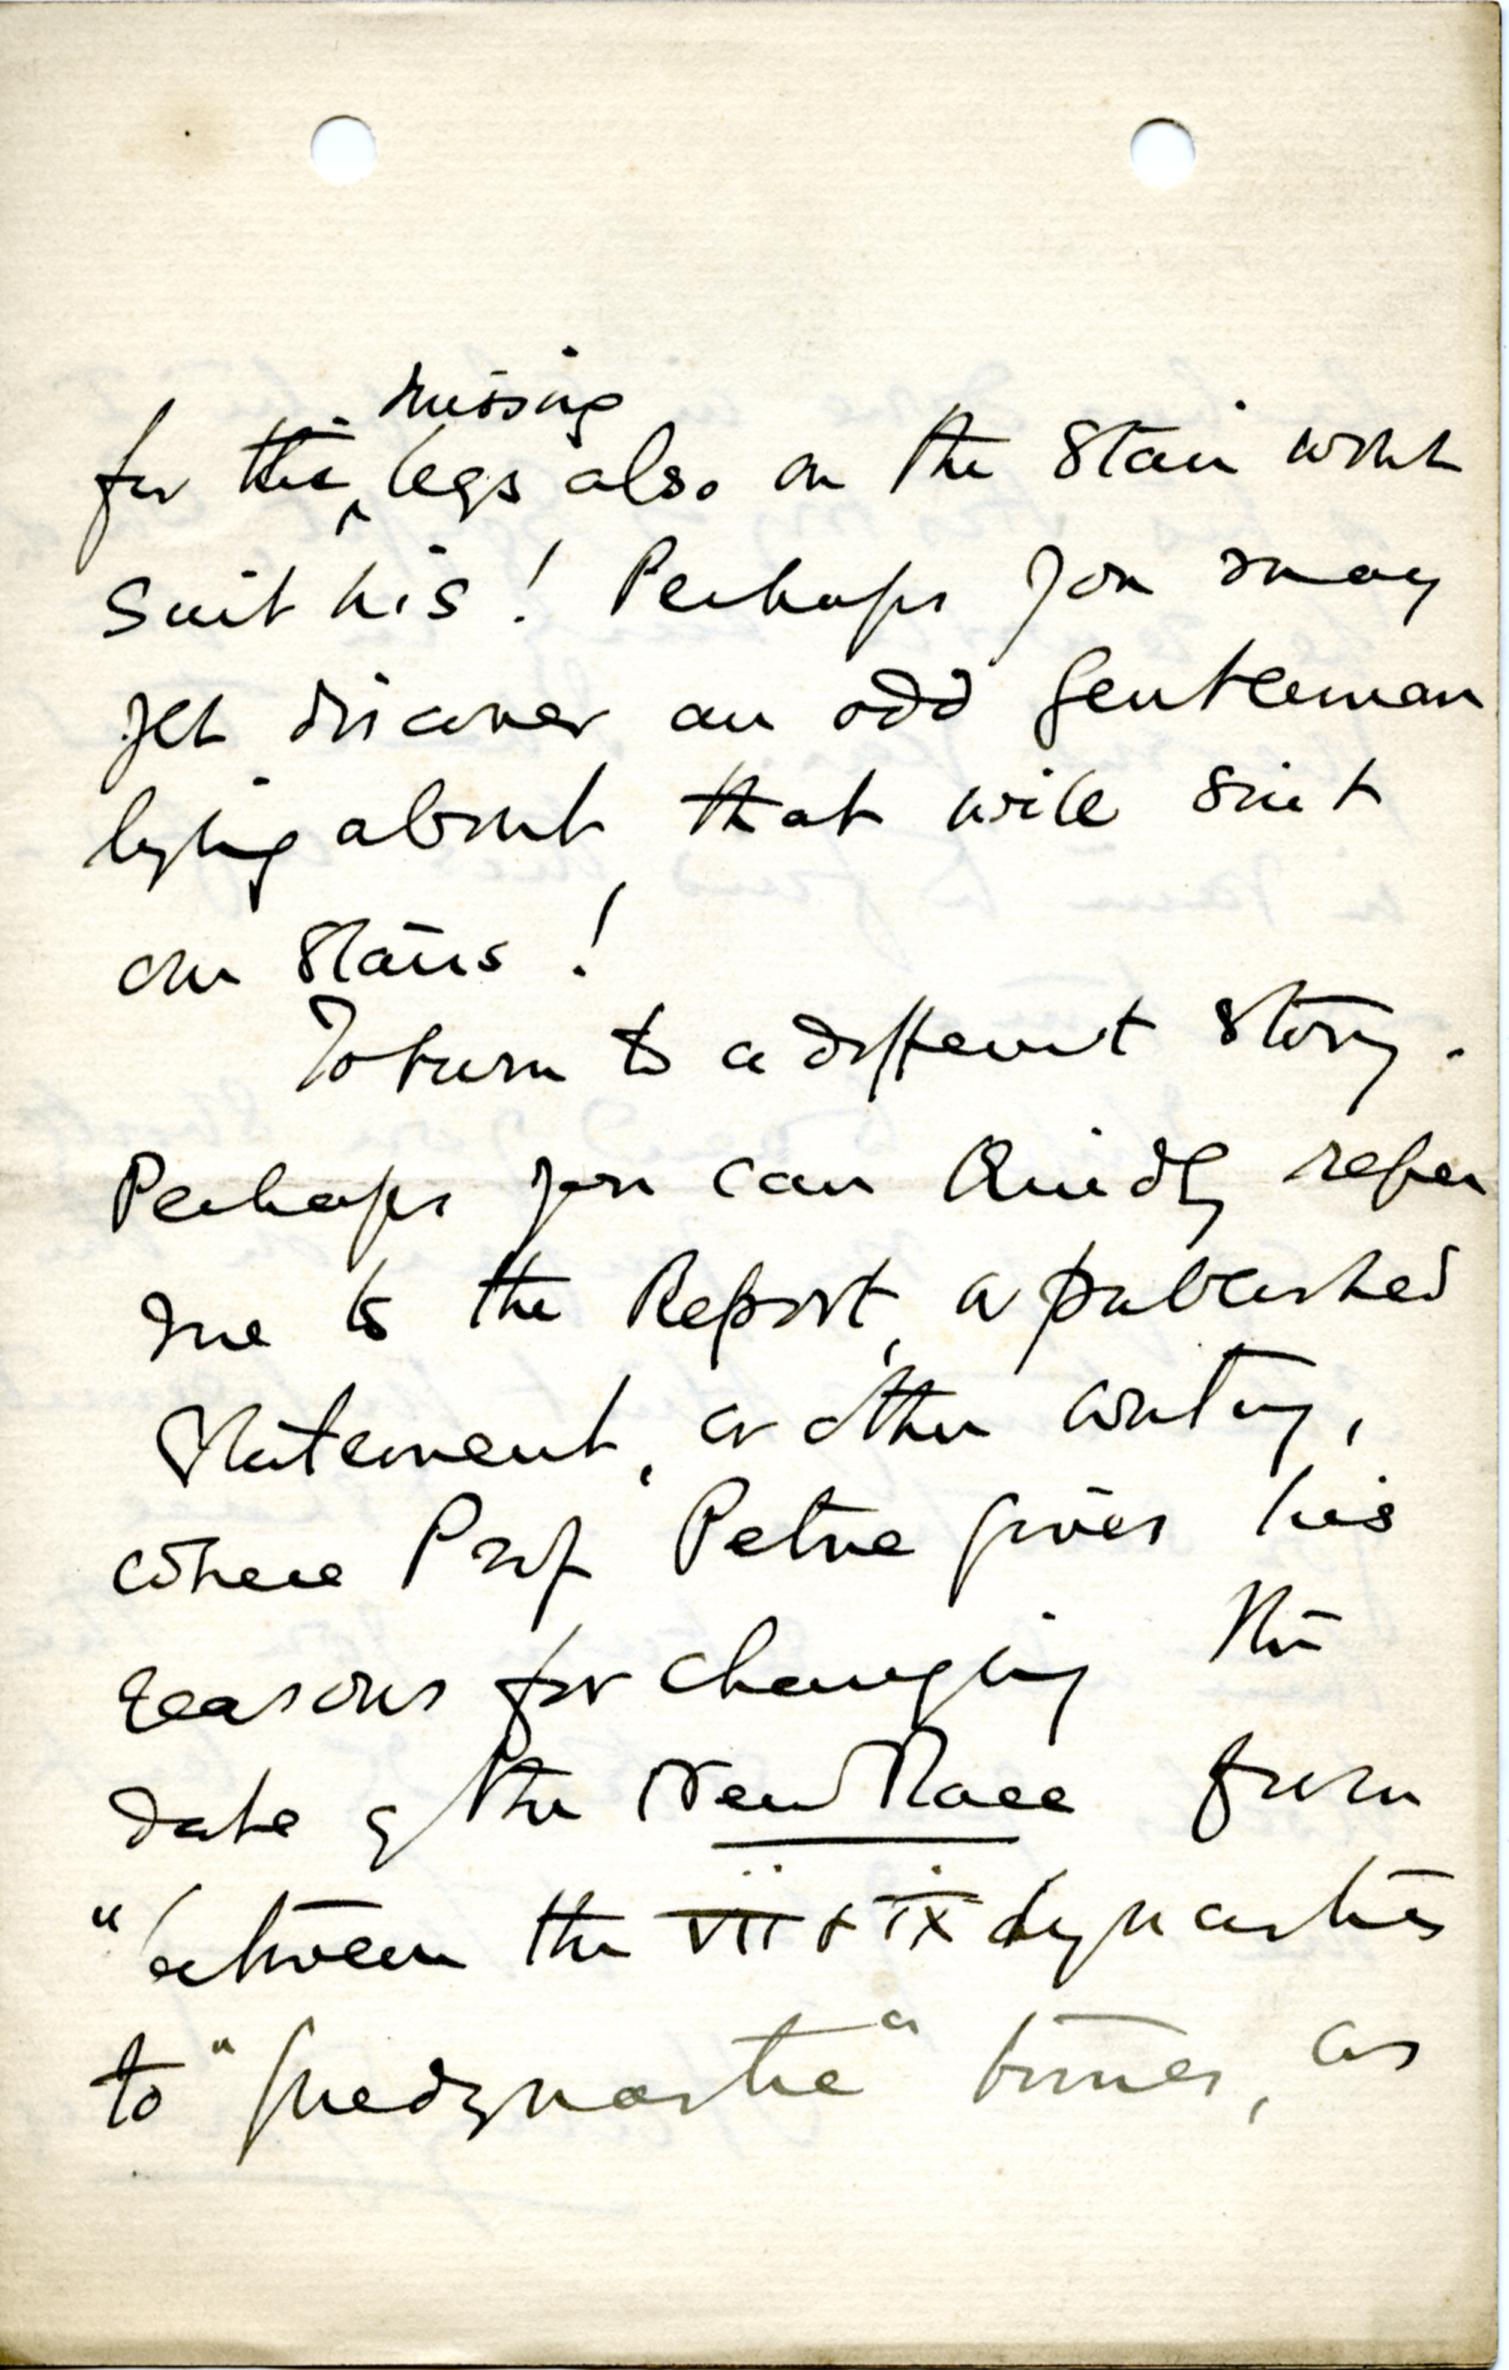 missing
for the ‸ legs also on the Stair wont
Suit his! Perhaps you may
yet discover an odd gentleman
lying about that will suit
our Stairs!
To turn to a different story.
Perhaps you can kindly refer
me to the Report, a published
Statement, or other writing,
where Prof Petrie gives his
reasons for changing the
date of the New Race from
"between the vii & ix dynasties
to "predynastic" times, as